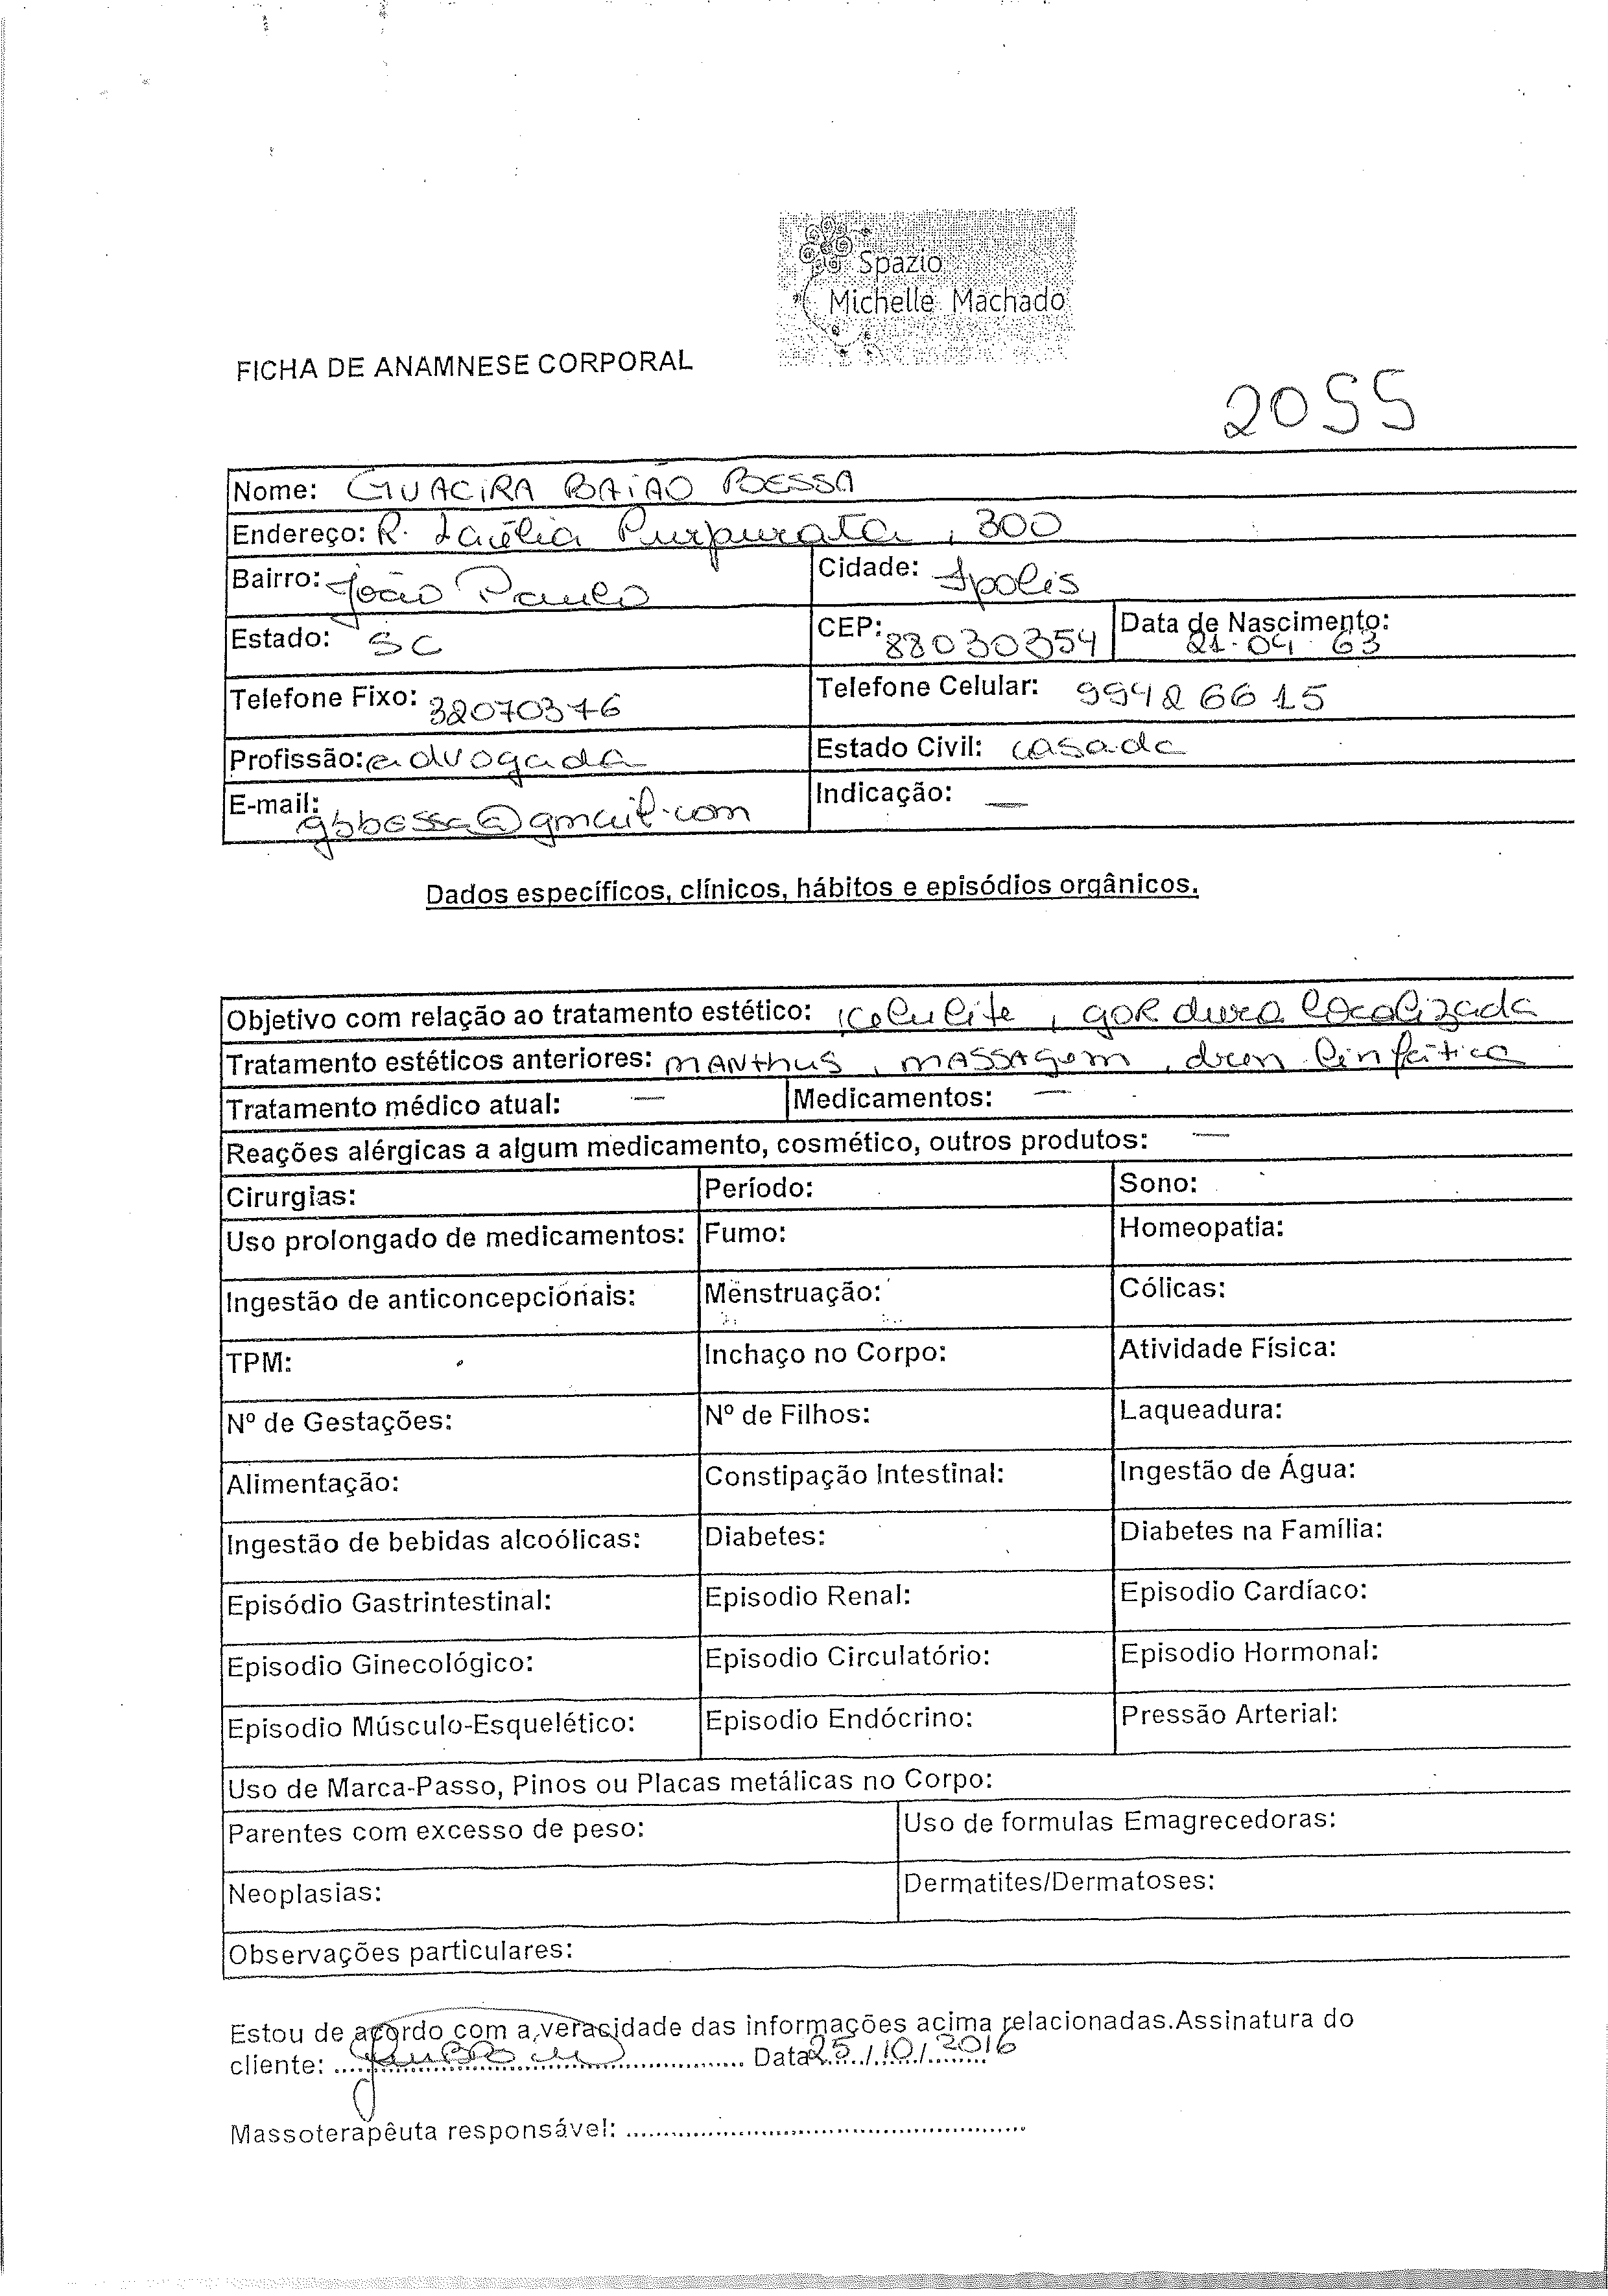 Spazio
Michelle Machado
FICHA DE ANAMNESE CORPORAL
2055
Nome: GUACIRA BAIÃO BESSA
Endereço: R. Laélia Purpurata, 300
Bairro: João Paulo Cidade: Fpolis
Estado: SC CEP: 88030354 Data de Nascimento: 21.04.63
Telefone Fixo: 32070376 Telefone Celular: 99926615
Profissão: advogada Estado Civil: casada
E-mail: gbbessa@gmail.com Indicação: —
Dados específicos, clínicos, hábitos e episódios orgânicos.
Objetivo com relação ao tratamento estético: celulite, gordura localizada
Tratamento estéticos anteriores: MANthus, MASSAgem, dren linfática
Tratamento médico atual: — Medicamentos: —
Reações alérgicas a algum medicamento, cosmético, outros produtos: —
Cirurgias: Período: Sono:
Uso prolongado de medicamentos: Fumo: Homeopatia:
Ingestão de anticoncepcionais: Menstruação: Cólicas:
TPM: Inchaço no Corpo: Atividade Física:
Nº de Gestações: Nº de Filhos: Laqueadura:
Alimentação: Constipação Intestinal: Ingestão de Água:
Ingestão de bebidas alcoólicas: Diabetes: Diabetes na Família:
Episódio Gastrintestinal: Episodio Renal: Episodio Cardíaco:
Episodio Ginecológico: Episodio Circulatório: Episodio Hormonal:
Episodio Músculo-Esquelético: Episodio Endócrino: Pressão Arterial:
Uso de Marca-Passo, Pinos ou Placas metálicas no Corpo:
Parentes com excesso de peso: Uso de formulas Emagrecedoras:
Neoplasias: Dermatites/Dermatoses:
Observações particulares:
Estou de acordo com a veracidade das informações acima relacionadas.Assinatura do
cliente: Data 25/10/2016
Massoterapêuta responsável: